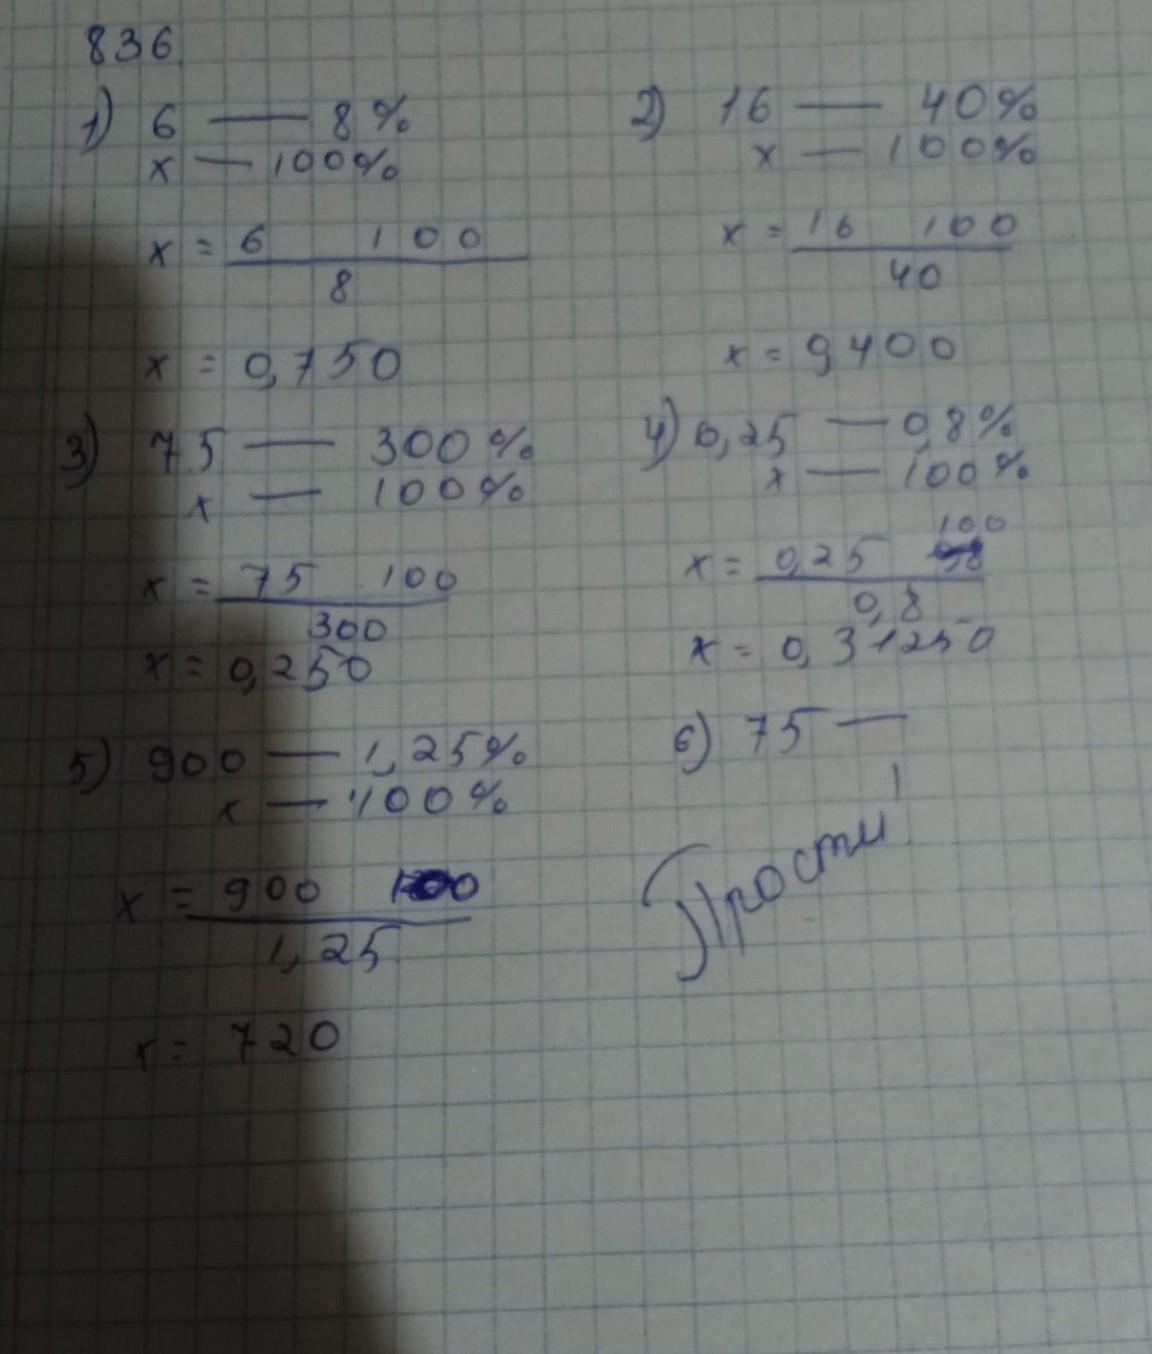 836
1) 6 — 8%
x — 100%
x = 6 100
8
x = 0,750
2) 16 — 40%
x — 100%
x = 16 100
40
x = 0,400
3) 75 — 300%
x — 100%
x = 75 100
300
x = 0,250
4) 0,25 — 0,8%
x — 100%
100
x = 0,25
0,8
x = 0,31250
5) 900 — 1,25%
x — 100%
x = 900 100
1,25
x = 720
6) 75 —
Прости!